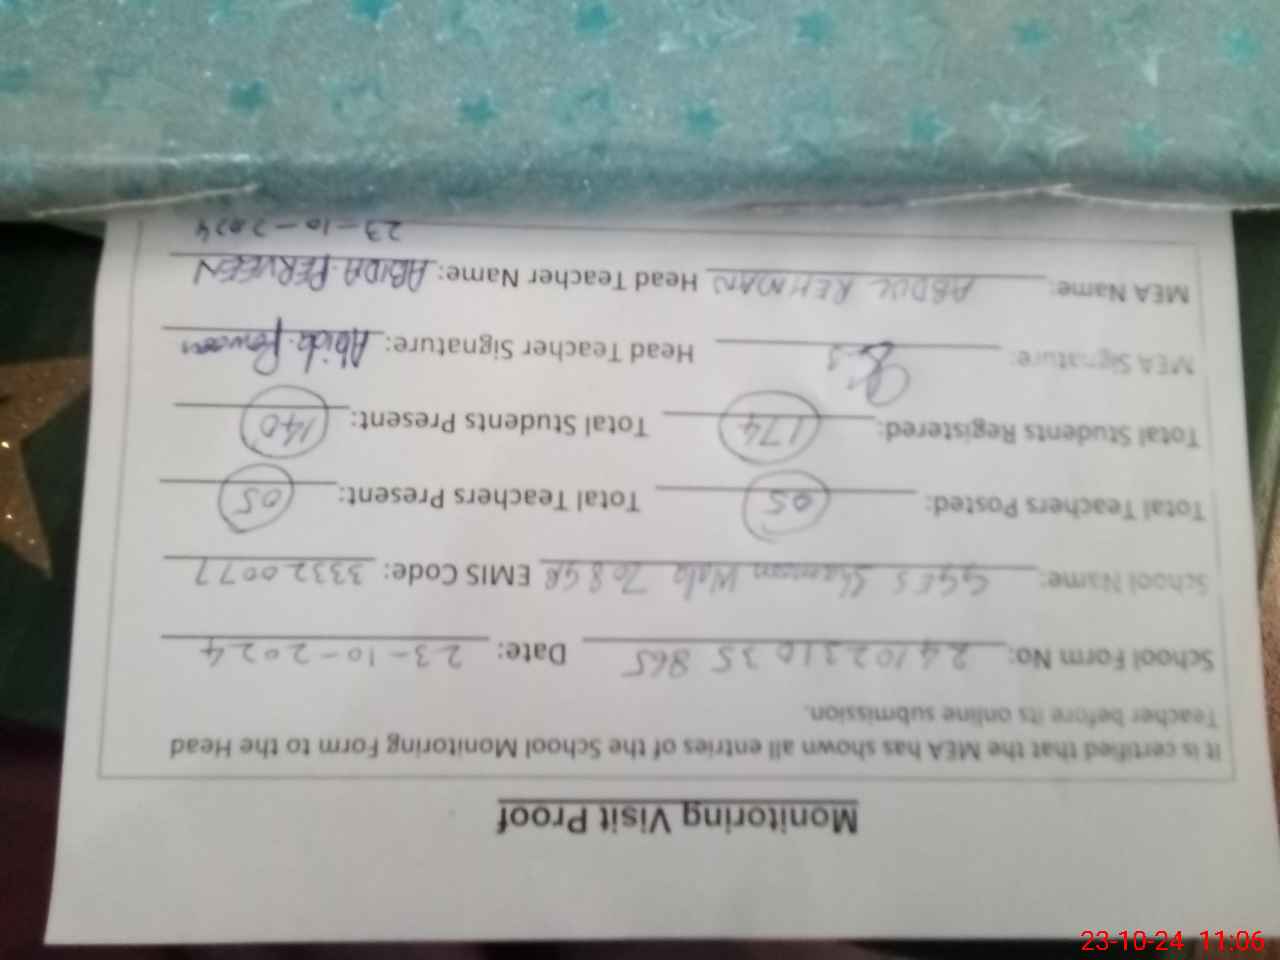 Monitoring Visit Proof
It is certified that the MEA has shown all entries of the School Monitoring Form to the Head
Teacher before its online submission.
School Form No: 24102310 35 865 Date: 23-10-2024
School Name: GGES Wala 708 GB EMIS Code: 33320077
Total Teachers Posted: 05 Total Teachers Present: 05
Total Students Registered: 174 Total Students Present: 140
MEA Signature: Head Teacher Signature: Abida Perveen
MEA Name: ABDUL REHMAN Head Teacher Name: ABIDA PERVEEN
23-10-2024
23-10-24 11:06